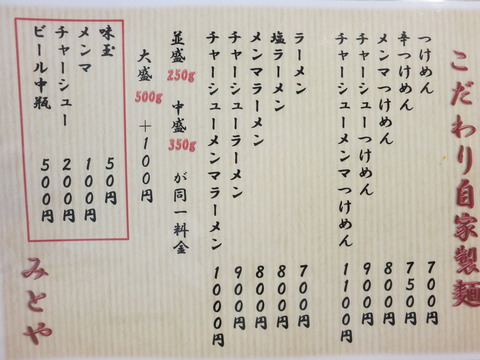 こだわり自家製麺
つけめん 700円
辛つけめん 750円
メンマつけめん 800円
チャーシューつけめん 900円
チャーシューメンマつけめん 1100円
ラーメン 700円
塩ラーメン 800円
メンマラーメン 800円
チャーシューラーメン 900円
チャーシューメンマラーメン 1000円
並盛250g 中盛350g が同一料金
大盛500g +100円
味玉 50円
メンマ 100円
チャーシュー 200円
ビール中瓶 500円
みとや